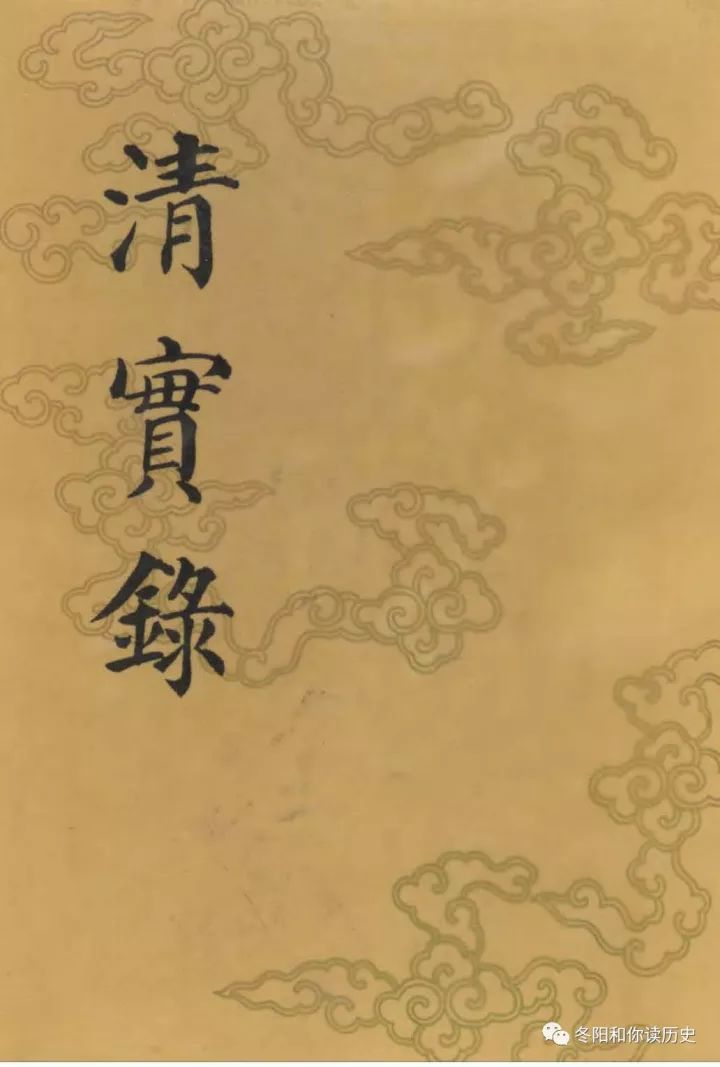 清實錄
冬阳和你读历史